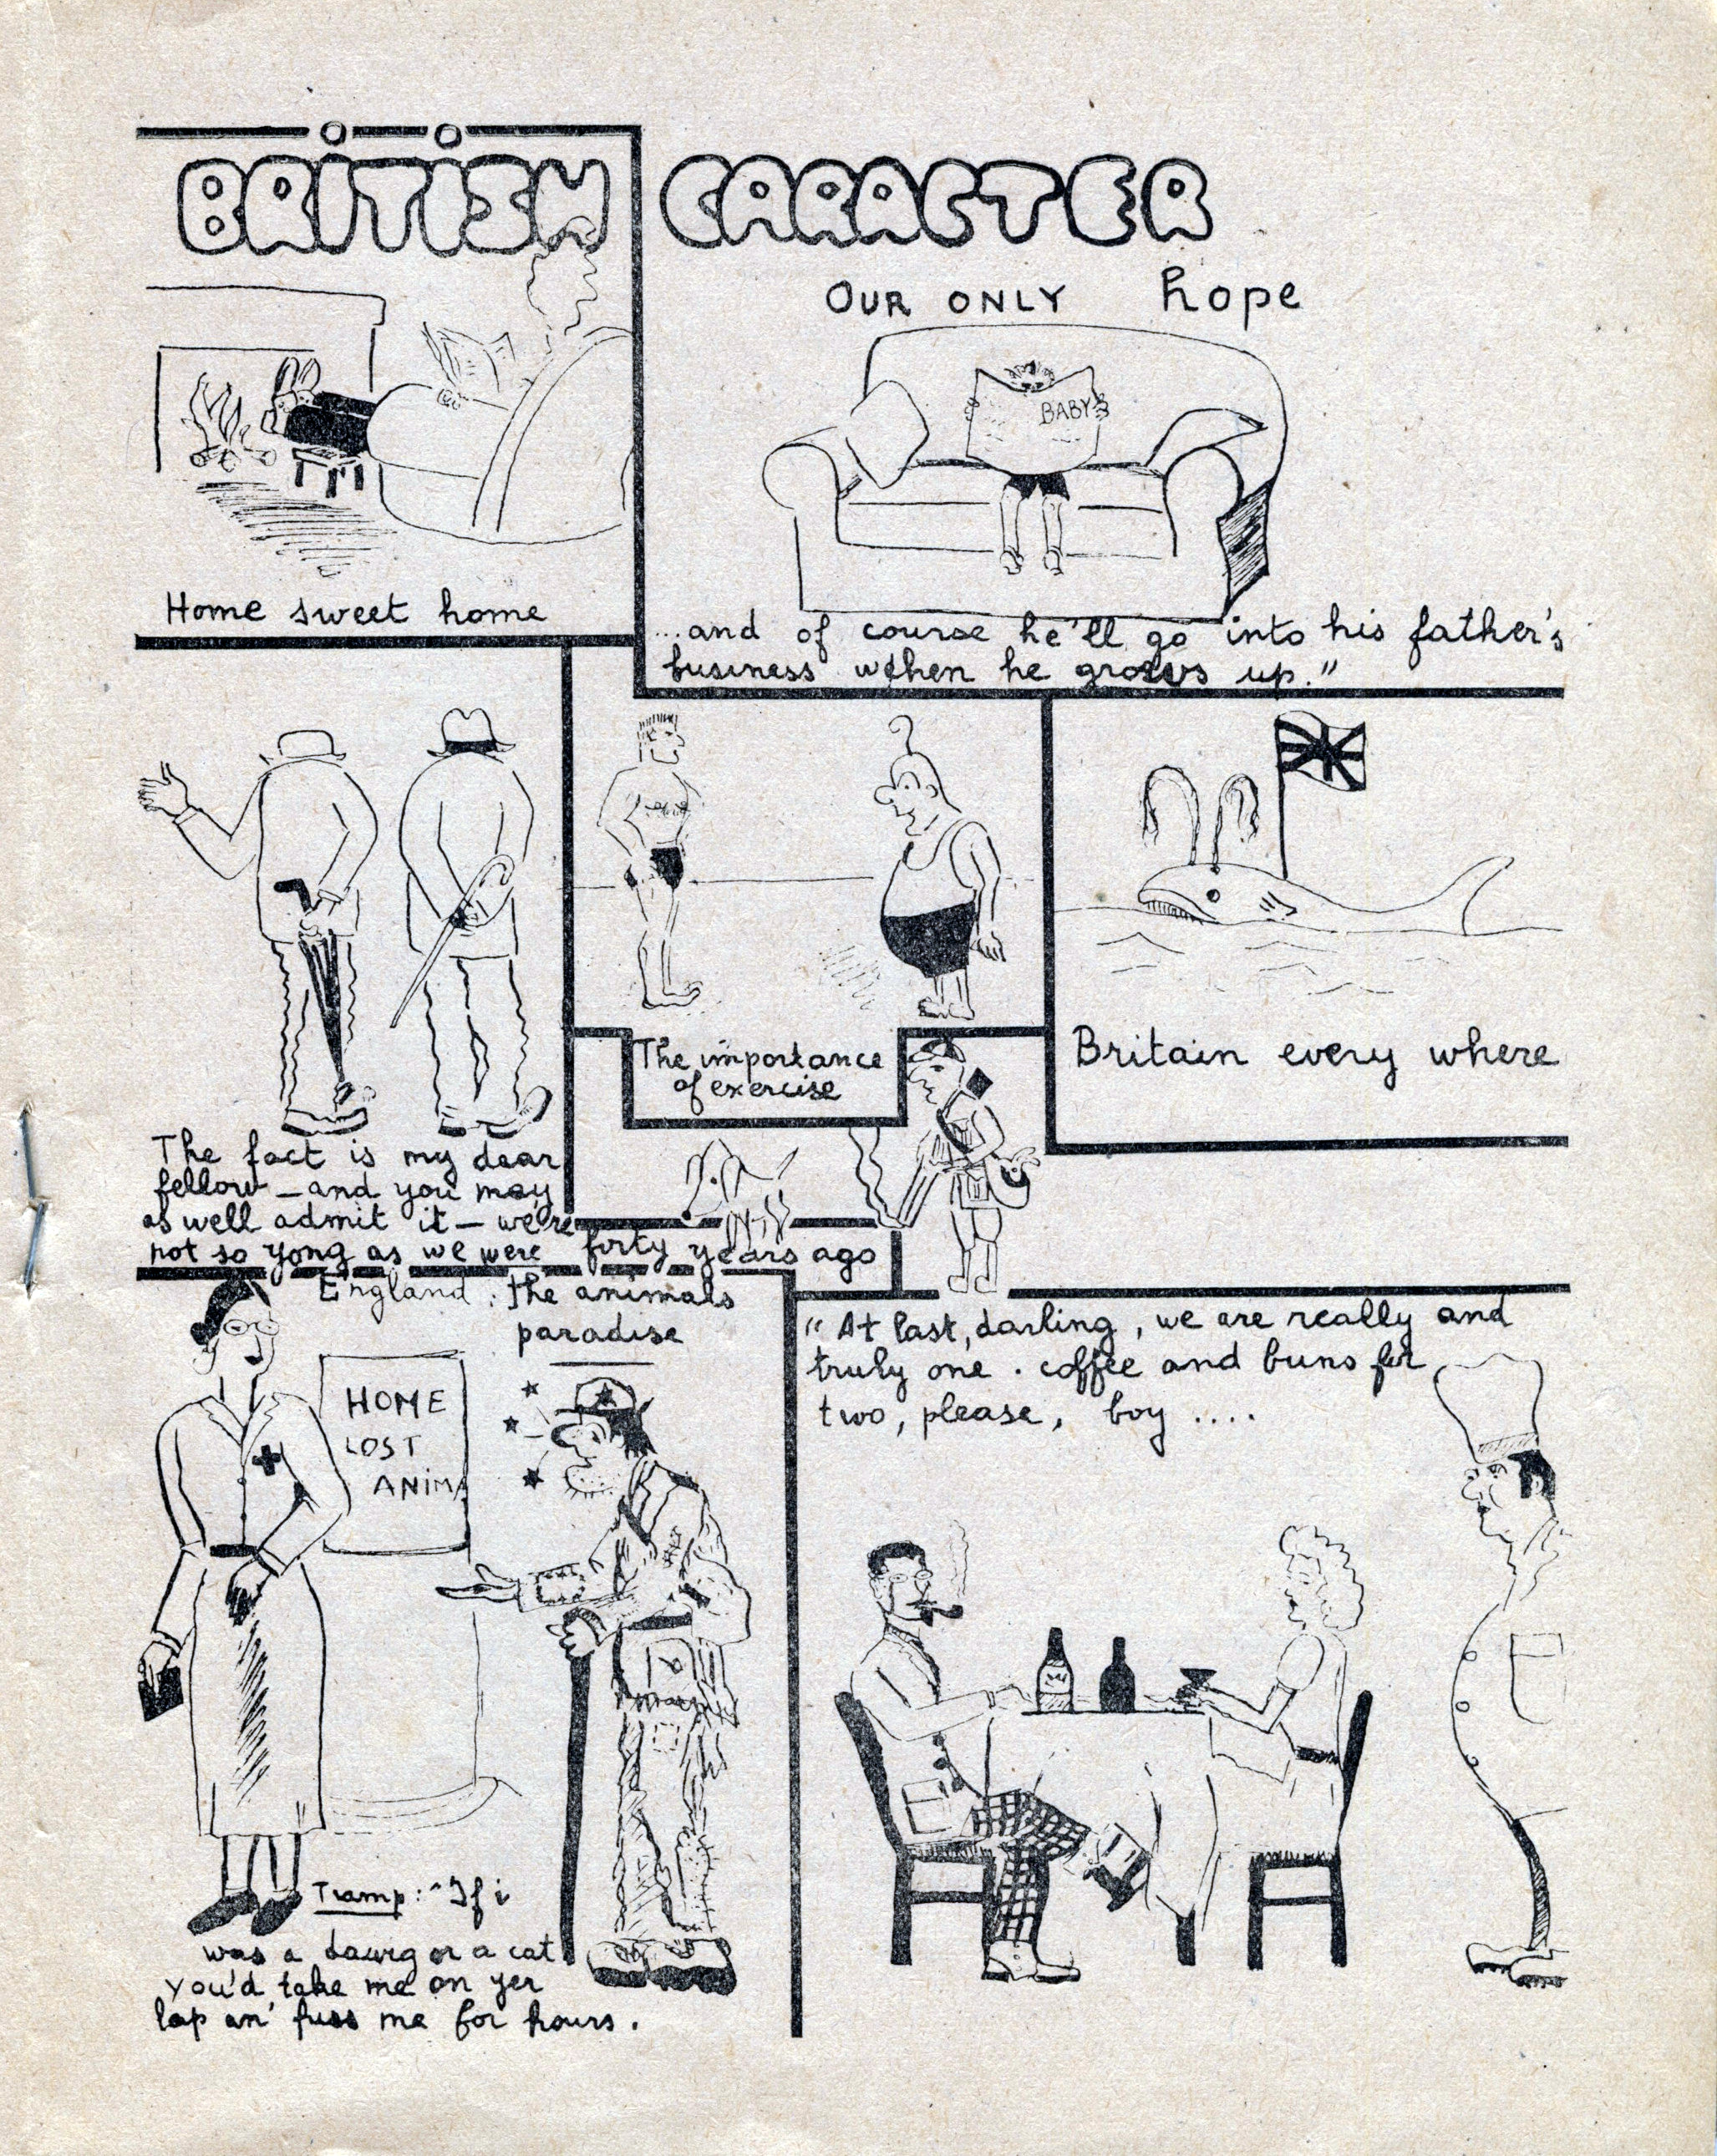 BRITISH CARACTER
Home sweet home
OUR ONLY hope
BABY
...and of course he'll go into his father's
business when he grows up."
The fact is my dear
fellow – and you may
as well admit it – we're
not so yong as we were forty years ago
The importance
of exercise
Britain every where
England: the animals
paradise
HOME
LOST
ANIMA
Tramp: "If i
was a dawrg or a cat
you'd take me on yer
lap an' fuss me for hours.
"At last, darling, we are really and
truly one. coffee and buns for
two, please, boy ....